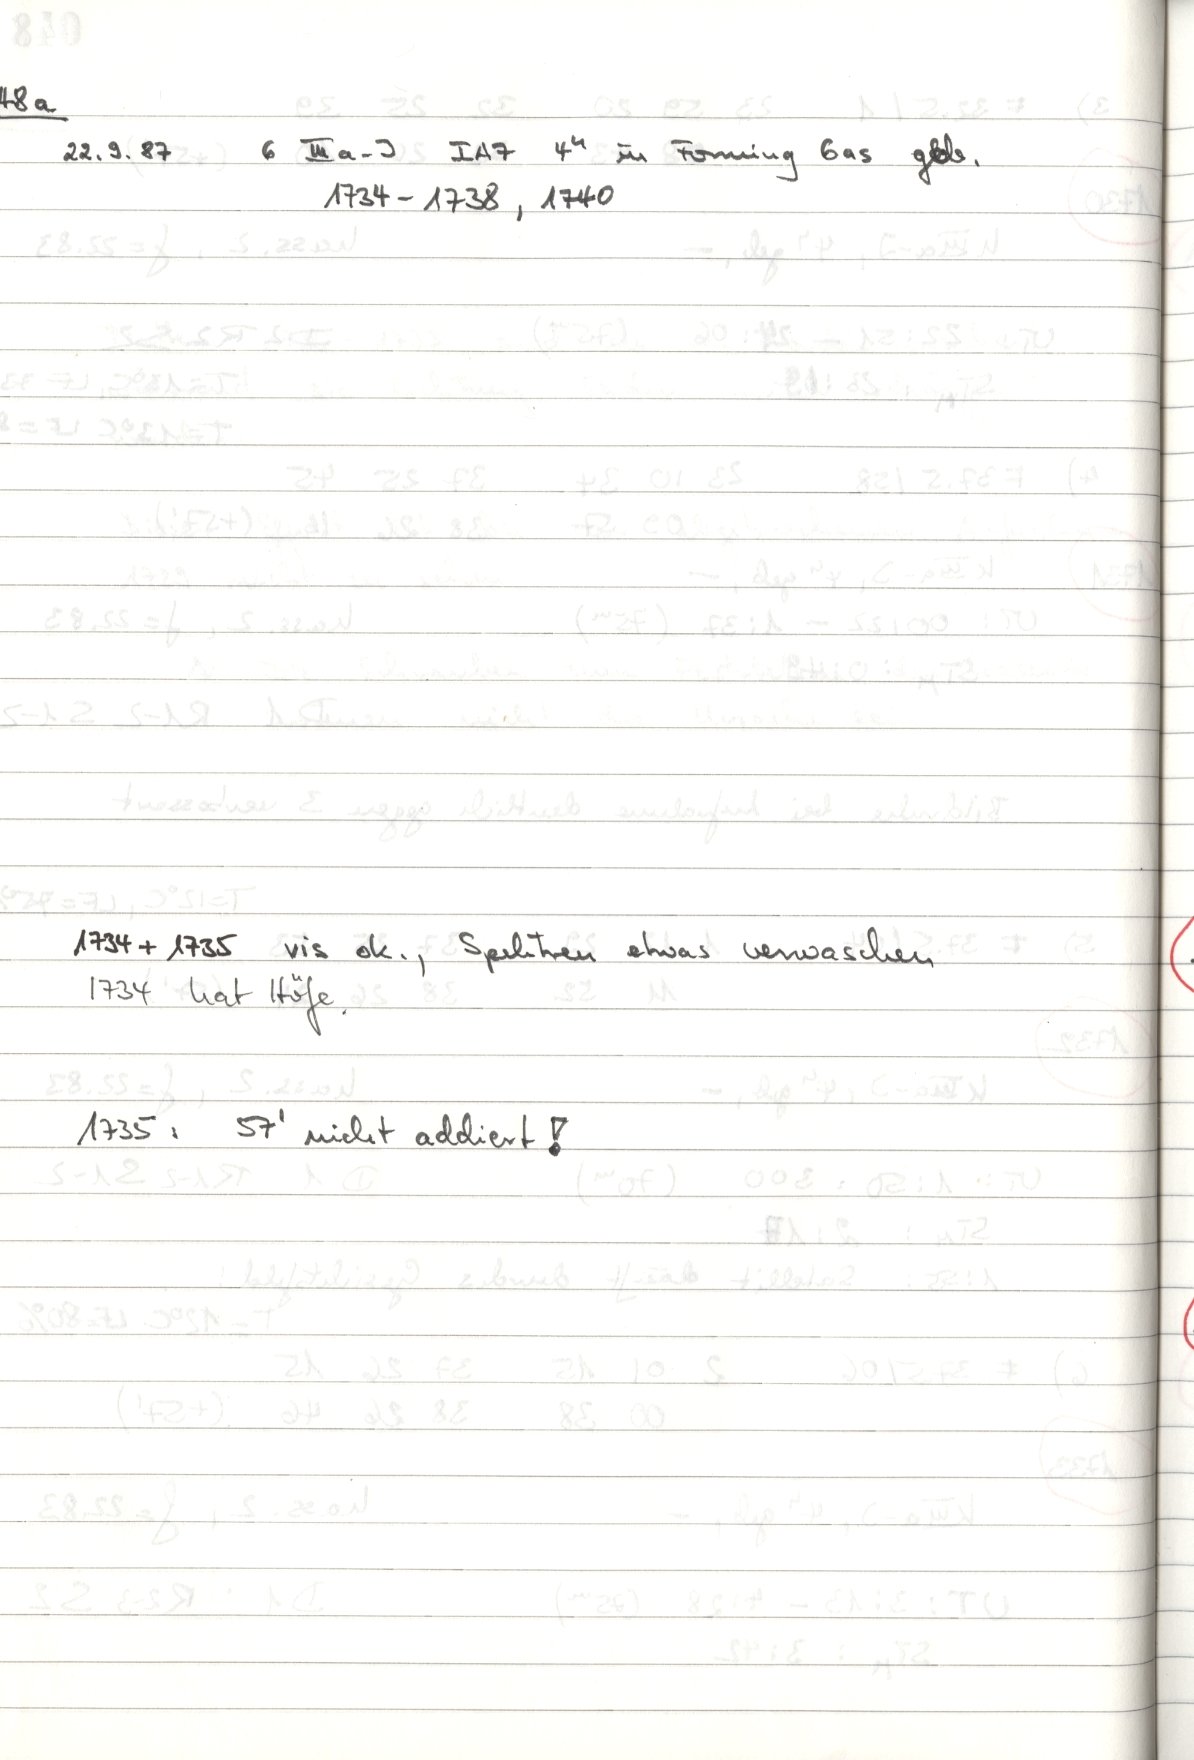 48a
22.9.87 6 IIIa-J IA7 4h in Forming Gas geb.
1734 – 1738, 1740
1734 + 1735 vis ok., Spektren etwas verwaschen
1734 hat Höfe.
1735: 57' nicht addiert!